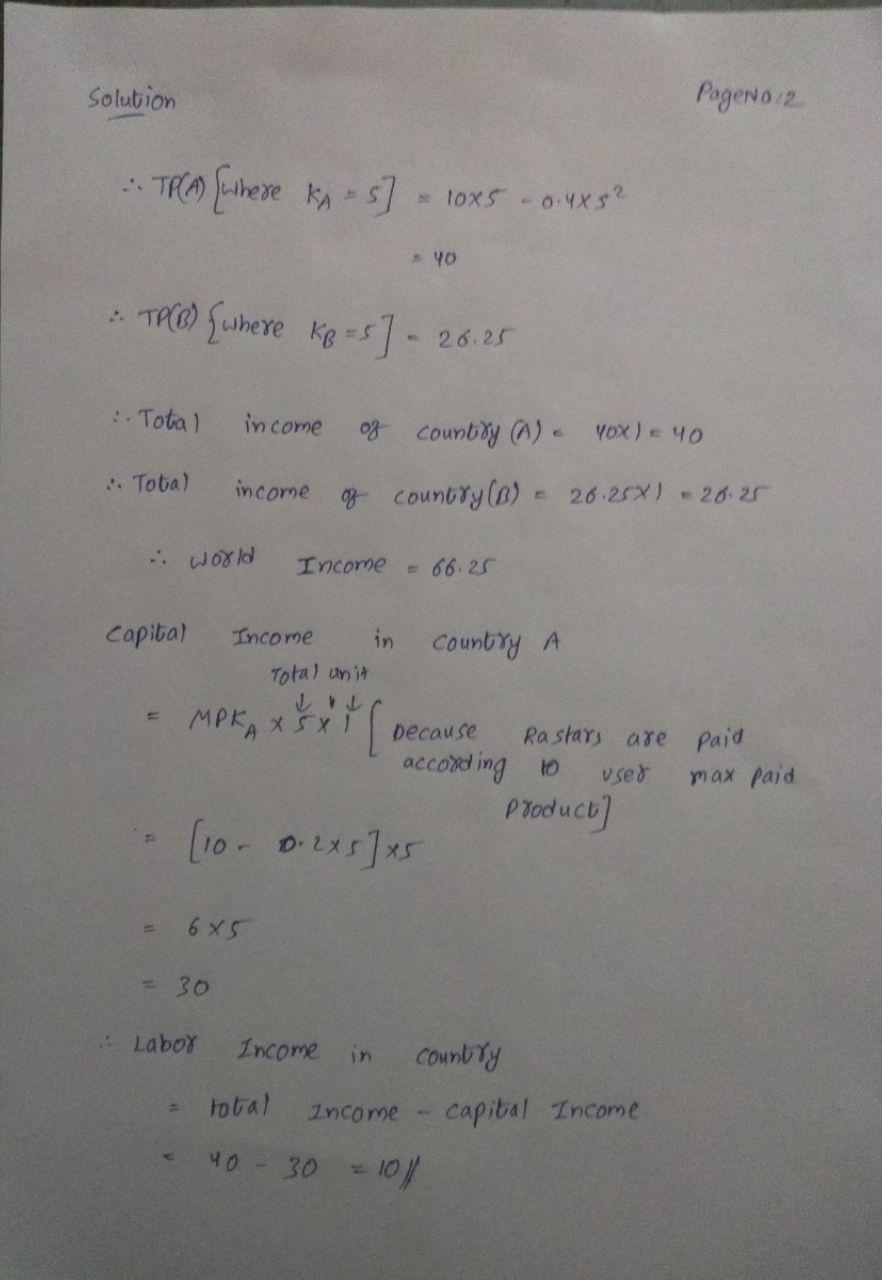 Solution
PageNo:2
∴ TP(A) [where KA = 5] = 10x5 - 0.4x5²
= 40
∴ TP(B) {where KB = 5] = 26.25
∴ Total income of country (A) = 40x1 = 40
∴ Total income of country (B) = 26.25x1 = 26.25
∴ World Income = 66.25
Capital Income in country A
Total unit
↓ ↓
= MPKA x 5 x 1 [ because Rastars are paid
according to user max paid
product]
= [10 - 0.2x5] x5
= 6x5
= 30
∴ Labor Income in country
= total Income - capital Income
= 40 - 30 = 10//